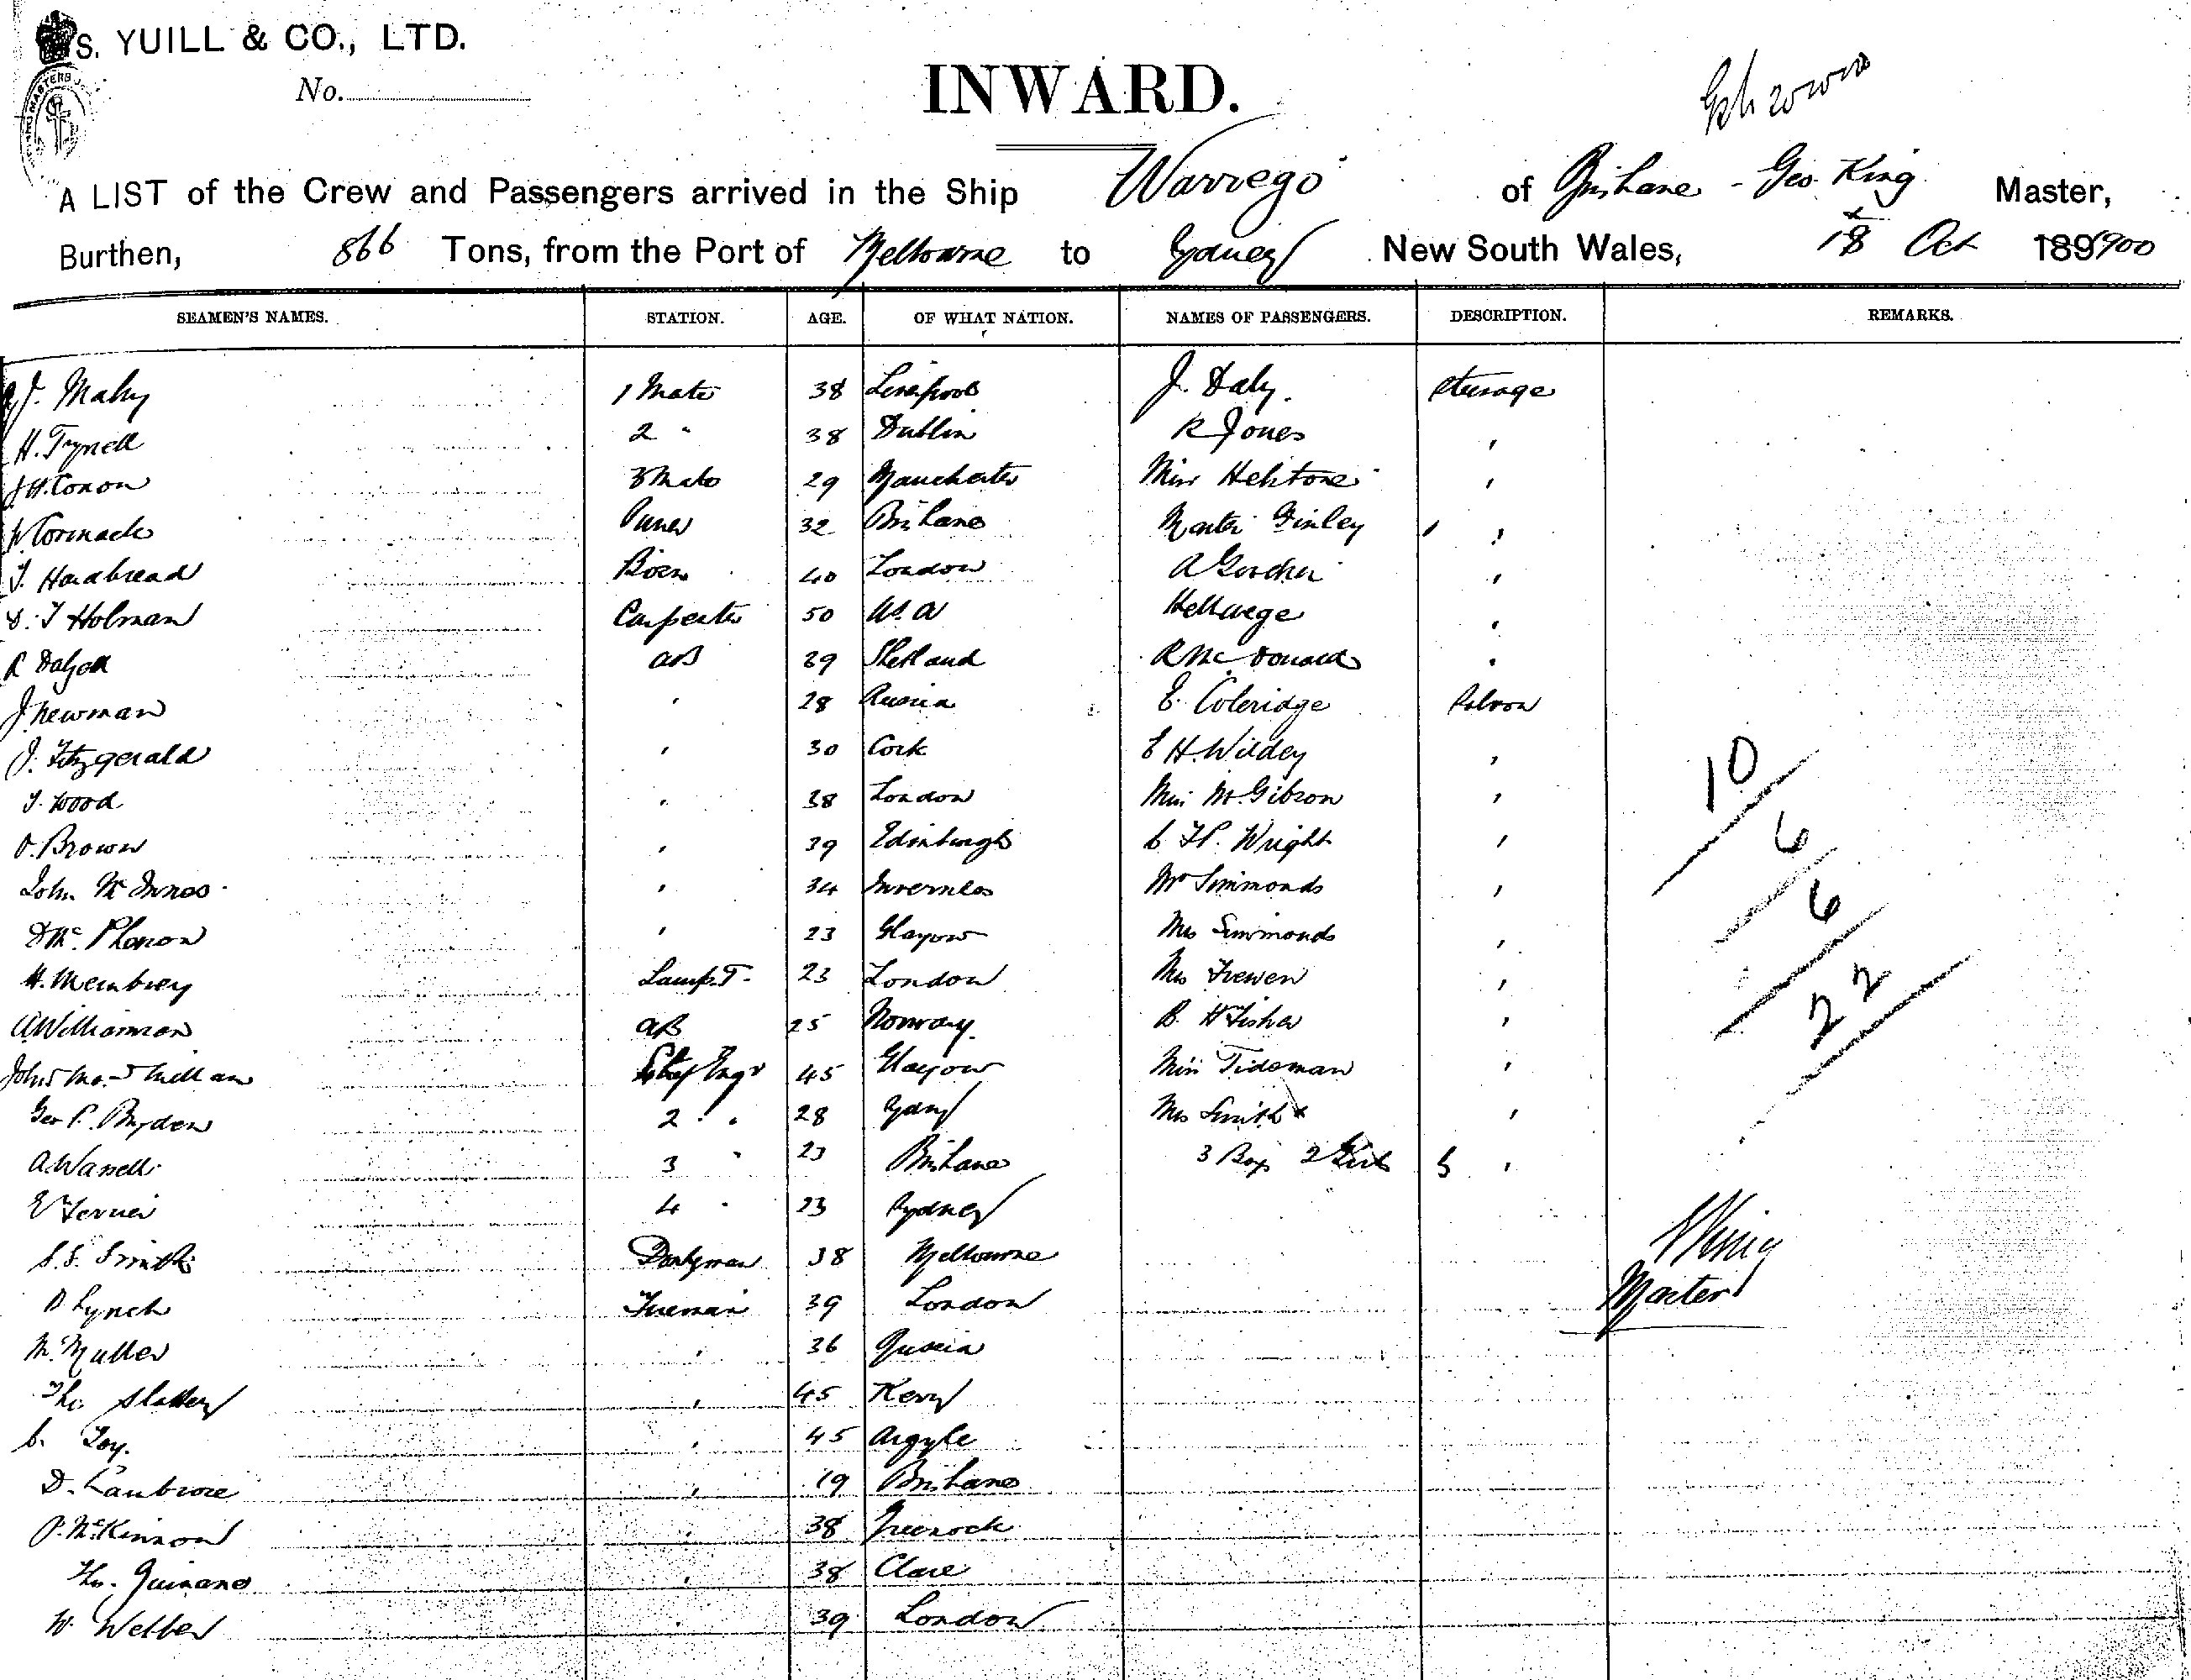 S. YUILL & CO., LTD.
No.
INWARD.
A LIST of the Crew and Passengers arrived in the Ship Warrego of Brisbane - Geo. King Master,
Burthen, 866 Tons, from the Port of Melbourne to Sydney New South Wales, 18 Oct 1900
SEAMEN'S NAMES. STATION. AGE. OF WHAT NATION. NAMES OF PASSENGERS. DESCRIPTION. REMARKS.
Malny 1 Mate 38 Liverpool J. Daly. Steerage
H. Tyrrell 2 " 38 Dublin R Jones "
J H. Coxon 3 Mate 29 Manchester Miss "
W Cormack Purser 32 Brisbane Master Finley 1 "
T. Hardbread Bosn 40 London A "
T Holman Carpenter 50 "
R Dalzell AB 29 Shetland R McDonald "
J. Newman " 28 Russia E. Coleridge Saloon
J. Fitzgerald " 30 Cork E H. Wildey "
T. Wood " 38 London Miss M. Gibson "
O. Brown " 39 Edinburgh Wright "
John McInnes " 34 Inverness Mr Simmonds "
D Mc. Pherson " 23 Glasgow Mrs Simmonds "
H. Membrey Lamp. T. 23 London Mrs Frewen "
A Williamson AB 25 Norway. B. H Fisher "
John Mc. Millan Chief Engr 45 Glasgow Miss Tidsman "
Geo P. Bryden 2 " 28 Sydney Mrs Smith x "
A. 3 " 23 Brisbane 3 Boys 2 Girls 5 "
4 " 23 Sydney
S. S. Smith Donkeyman 38 Melbourne
D Lynch Fireman 39 London
M. Muller " 36 Russia
Thos Slattery " 45 Kerry
C. Foy. " 45 Argyle
D. " 19 Brisbane
P. McKinnon " 38 Greenock
Thos. " 38 Clare
W. Webber " 39 London
10
6
6
22
G King
Master